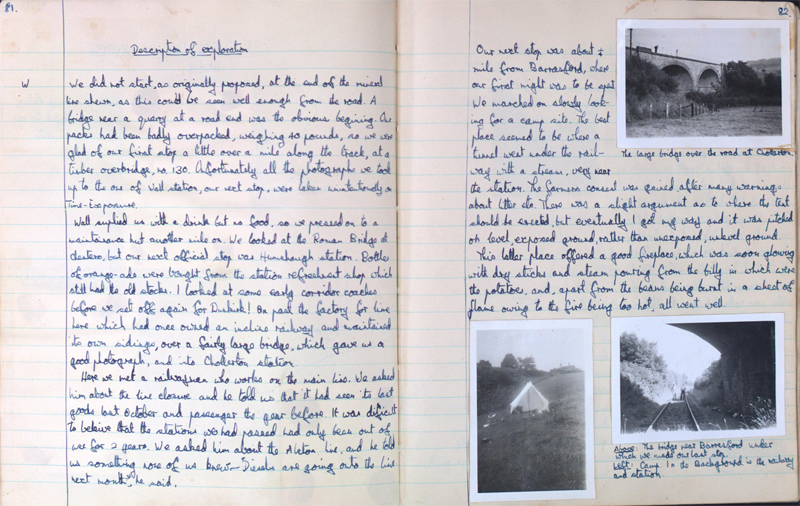 81.
Description of exploration
W
We did not start, as originally proposed, at the end of the mineral
line shewn, as this could be seen well enough from the road. A
bridge near a quarry at a road end was the obvious begining. Our
packs had been badly overpacked, weighing 40 pounds, so we were
glad of our first stop a little over a mile along the track, at a
timber overbridge, no. 130. Unfortunately all the photographs we took
up to the one of Wall station, our next stop, were taken unintentionally on
Time-Exposure.
Wall suplied us with a drink but no food, so we pressed on to a
maintainance hut another mile on. We looked at the Roman Bridge at
Chesters, but our next official stop was Humshaugh station. Bottles
of orange-ade were bought from the station refreshment shop which
still had the old stocks. I looked at some early corridor coaches
before we set off again for Dunkirk! On past the factory for lime
here which had once owned an incline railway and maintained
its own sidings, over a fairly large bridge, which gave us a
good photograph, and into Chollerton station.
Here we met a railwayman who works on the main line. We asked
him about the line closure and he told us that it had seen its last
goods last October and passenger the year before. It was dificult
to beleive that the stations we had passed had only been out of
use for 2 years. We asked him about the Alston line, and he told
us something none of us knew— "Diesels are going onto the line
next month", he said.
82.
Our next stop was about ½
mile from Barrasford, where
our first night was to be spent.
We marched on slowly, look-
ing for a camp site. The best
place seemed to be where a
tunnel went under the rail-
way with a stream, very near
the station. The farmers consent was gained after many warnings
about litter etc. There was a slight argument as to where the tent
should be erected, but eventually I got my way and it was pitched
on level, exposed ground, rather than unexposed, unlevel ground.
This latter place offered a good fireplace, which was soon glowing
with dry sticks and steam pouring from the billy in which were
the potatoes, and, apart from the beans being burnt in a sheet of
flame owing to the fire being too hot, all went well.
The large bridge over the road at Chollerton
Above: The bridge near Barrasford under
which we made our last stop.
Left: Camp. In the Background is the railway
and station